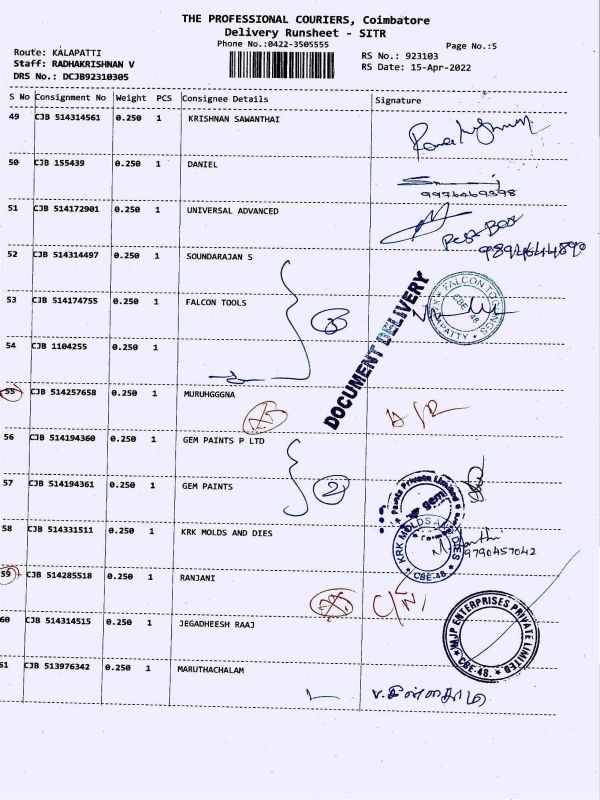 THE PROFESSIONAL COURIERS, Coimbatore
Delivery Runsheet - SITR
Phone No.:0422-3505555
Page No.:5
Route: KALAPATTI
Staff: RADHAKRISHNAN V
DRS No.: DCJB92310305
RS No.: 923103
RS Date: 15-Apr-2022
S No Consignment No Weight PCS Consignee Details Signature
49 CJB 514314561 0.250 1 KRISHNAN SAWANTHAI
50 CJB 155439 0.250 1 DANIEL
9976469398
51 CJB 514172901 0.250 1 UNIVERSAL ADVANCED
Rest Box
9894644890
52 CJB 514314497 0.250 1 SOUNDARAJAN S
53 CJB 514174755 0.250 1 FALCON TOOLS
3
FALCON TOOLINGS
CBE-48
DOCUMENT DELIVERY
54 CJB 1104255 0.250 1
55 CJB 514257658 0.250 1 MURUHGGGNA
56 CJB 514194360 0.250 1 GEM PAINTS P LTD
57 CJB 514194361 0.250 1 GEM PAINTS
2
Paints Private Limited
gem
58 CJB 514331511 0.250 1 KRK MOLDS AND DIES
KRK MOLDS AND DIES
CBE-48.
9790457042
59 CJB 514285518 0.250 1 RANJANI
60 CJB 514314515 0.250 1 JEGADHEESH RAAJ
MJP ENTERPRISES PRIVATE LIMITED
CBE-48.
61 CJB 513976342 0.250 1 MARUTHACHALAM